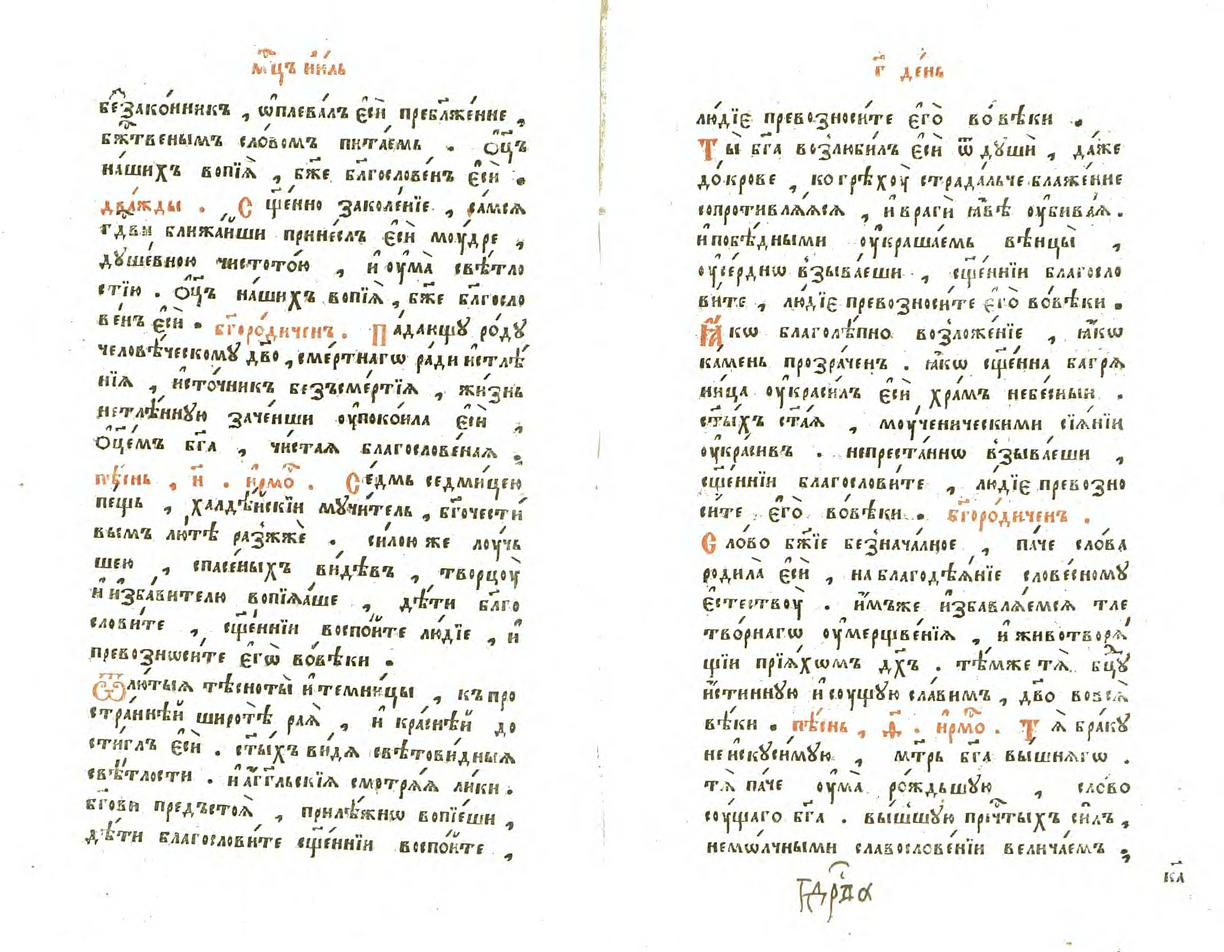 мⷭ҇цъ і҆ю́ль
беꙁако́нникъ , ѡ҆плева́лъ є҆сѝ пребл҃же́нне ,
бжⷭ҇твенымъ сло́вомъ пита́емь . Ѻ҆ц҃ъ
на́шихъ вопїѧ̀ , бж҃е бл҃гослове́нъ є҆сѝ .
два́жды . Сщ҃е́нно заколе́нїе , са́мсѧ
гдⷭ҇ви ближа́йши прине́слъ є҆сѝ моу́дре ,
дꙋше́вною чистото́ю , и҆ оу҆ма̀ свѣ́тло
стїю . Ѻ҆ц҃ъ на́шихъ вопїѧ̀ , бж҃е бл҃госло
ве́нъ є҆сѝ . бг҃оро́диченъ . Па́дшꙋ ро́дꙋ
человѣ́ческомꙋ дв҃о , сме́ртнагѡ ради и҆стлѣ́
нїѧ , и҆сто́чникъ безъсме́ртїѧ , жи́знь
нетлѣ́ннꙋю заче́нши оу҆поко́ила є҆сѝ ,
Ѻ҆ц҃е́мъ бг҃а , чи́стаѧ благослове́наѧ .
пѣ́снь , и҃ . і҆рмо́съ . Се́дмь седми́цею
пе́щь , халдѣ́искїи мꙋчи́тель , бг҃очести́
вымъ лю́тѣ разжжѐ . си́лою же лоу́чь
шею , спасе́ныхъ ви́дѣвъ , творцоу̀
и҆ и҆зба́вителю вопїѧ́ше , дѣ́ти бл҃го
слови́те , сщ҃е́ннїи воспо́йте лю́дїе , и҆
превозносѝте є҆гѡ̀ во́вѣ́ки .
Ѿ лю́тыѧ тѣсноты̀ и҆ темни́цы , къ про
стра́ннѣй широтѣ̀ раѧ̀ , и҆ кра́снѣй до
сти́глъ є҆сѝ . ст҃ы́хъ ви́дѧ свѣтови́дныѧ
свѣ́тлости . и҆ а҆́гг҃льскїѧ смотрѧ́ѧ ли́ки .
бг҃ови предъстоѧ̀ , прилѣ́жнѡ вопїе́ши ,
дѣ́ти благослови́те сщ҃е́ннїи воспо́йте ,
г҃ де́нь
лю́дїе превозноси́те є҆го̀ во́вѣ́ки .
Ты̀ бг҃а возлюби́лъ є҆сѝ ѿ дꙋшѝ , да́же
до́крове , ко грѣхоу̀ страда́льче блаже́нне
сопротивлѧ́ѧсѧ , и҆ врагѝ ꙗ҆́вѣ оу҆бива́ѧ .
и҆ побѣ́дными оу҆краша́емь вѣнцы̀ ,
оу҆се́рднѡ взыва́еши , сщ҃е́ннїи благосло
ви́те , лю́дїе превозноси́те є҆го̀ во́вѣ́ки .
Ꙗ҆́кѡ благолѣ́пно возложе́нїе , ꙗ҆́кѡ
ка́мень прозра́ченъ . ꙗ҆́кѡ сщ҃е́нна багрѧ
ни́ца оу҆краси́лъ є҆сѝ хра́мъ небе́сный .
ст҃ы́хъ ст҃а́ѧ , моу́ченическими сїѧ́нїи
оу҆кра́сивъ . непреста́ннѡ взыва́еши ,
сщ҃е́ннїи благослови́те , лю́дїе превозно
си́те є҆го̀ во́вѣ́ки . бг҃оро́диченъ .
Сло́во бж҃їе безнача́лное , па́че сло́ва
родила̀ є҆сѝ , на благодѣѧ́нїе слове́сномꙋ
є҆стествоу̀ . и҆́мъже и҆збавлѧ́емсѧ тле
тво́рнагѡ оу҆мерщве́нїѧ , и҆ животворѧ́
щїи прїѧ́хомъ дх҃ъ . тѣ́мже тѧ̀ бц҃ꙋ
и҆́стиннꙋю и҆ соу́щꙋю сла́вимъ , дв҃о во всѧ̀
вѣ́ки . пѣ́снь , ѳ҃ . і҆рмо́съ . Тѧ̀ бра́кꙋ
не и҆скꙋси́мꙋю , мт҃рь бг҃а вы́шнѧгѡ .
тѧ̀ па́че оу҆ма̀ ро́ждьшꙋю , сло́во
соу́щаго бг҃а . вы́шшꙋю прчⷭ҇тыхъ си́лъ ,
немѡ́лчными славослове́нїи велича́емъ .
к҃а